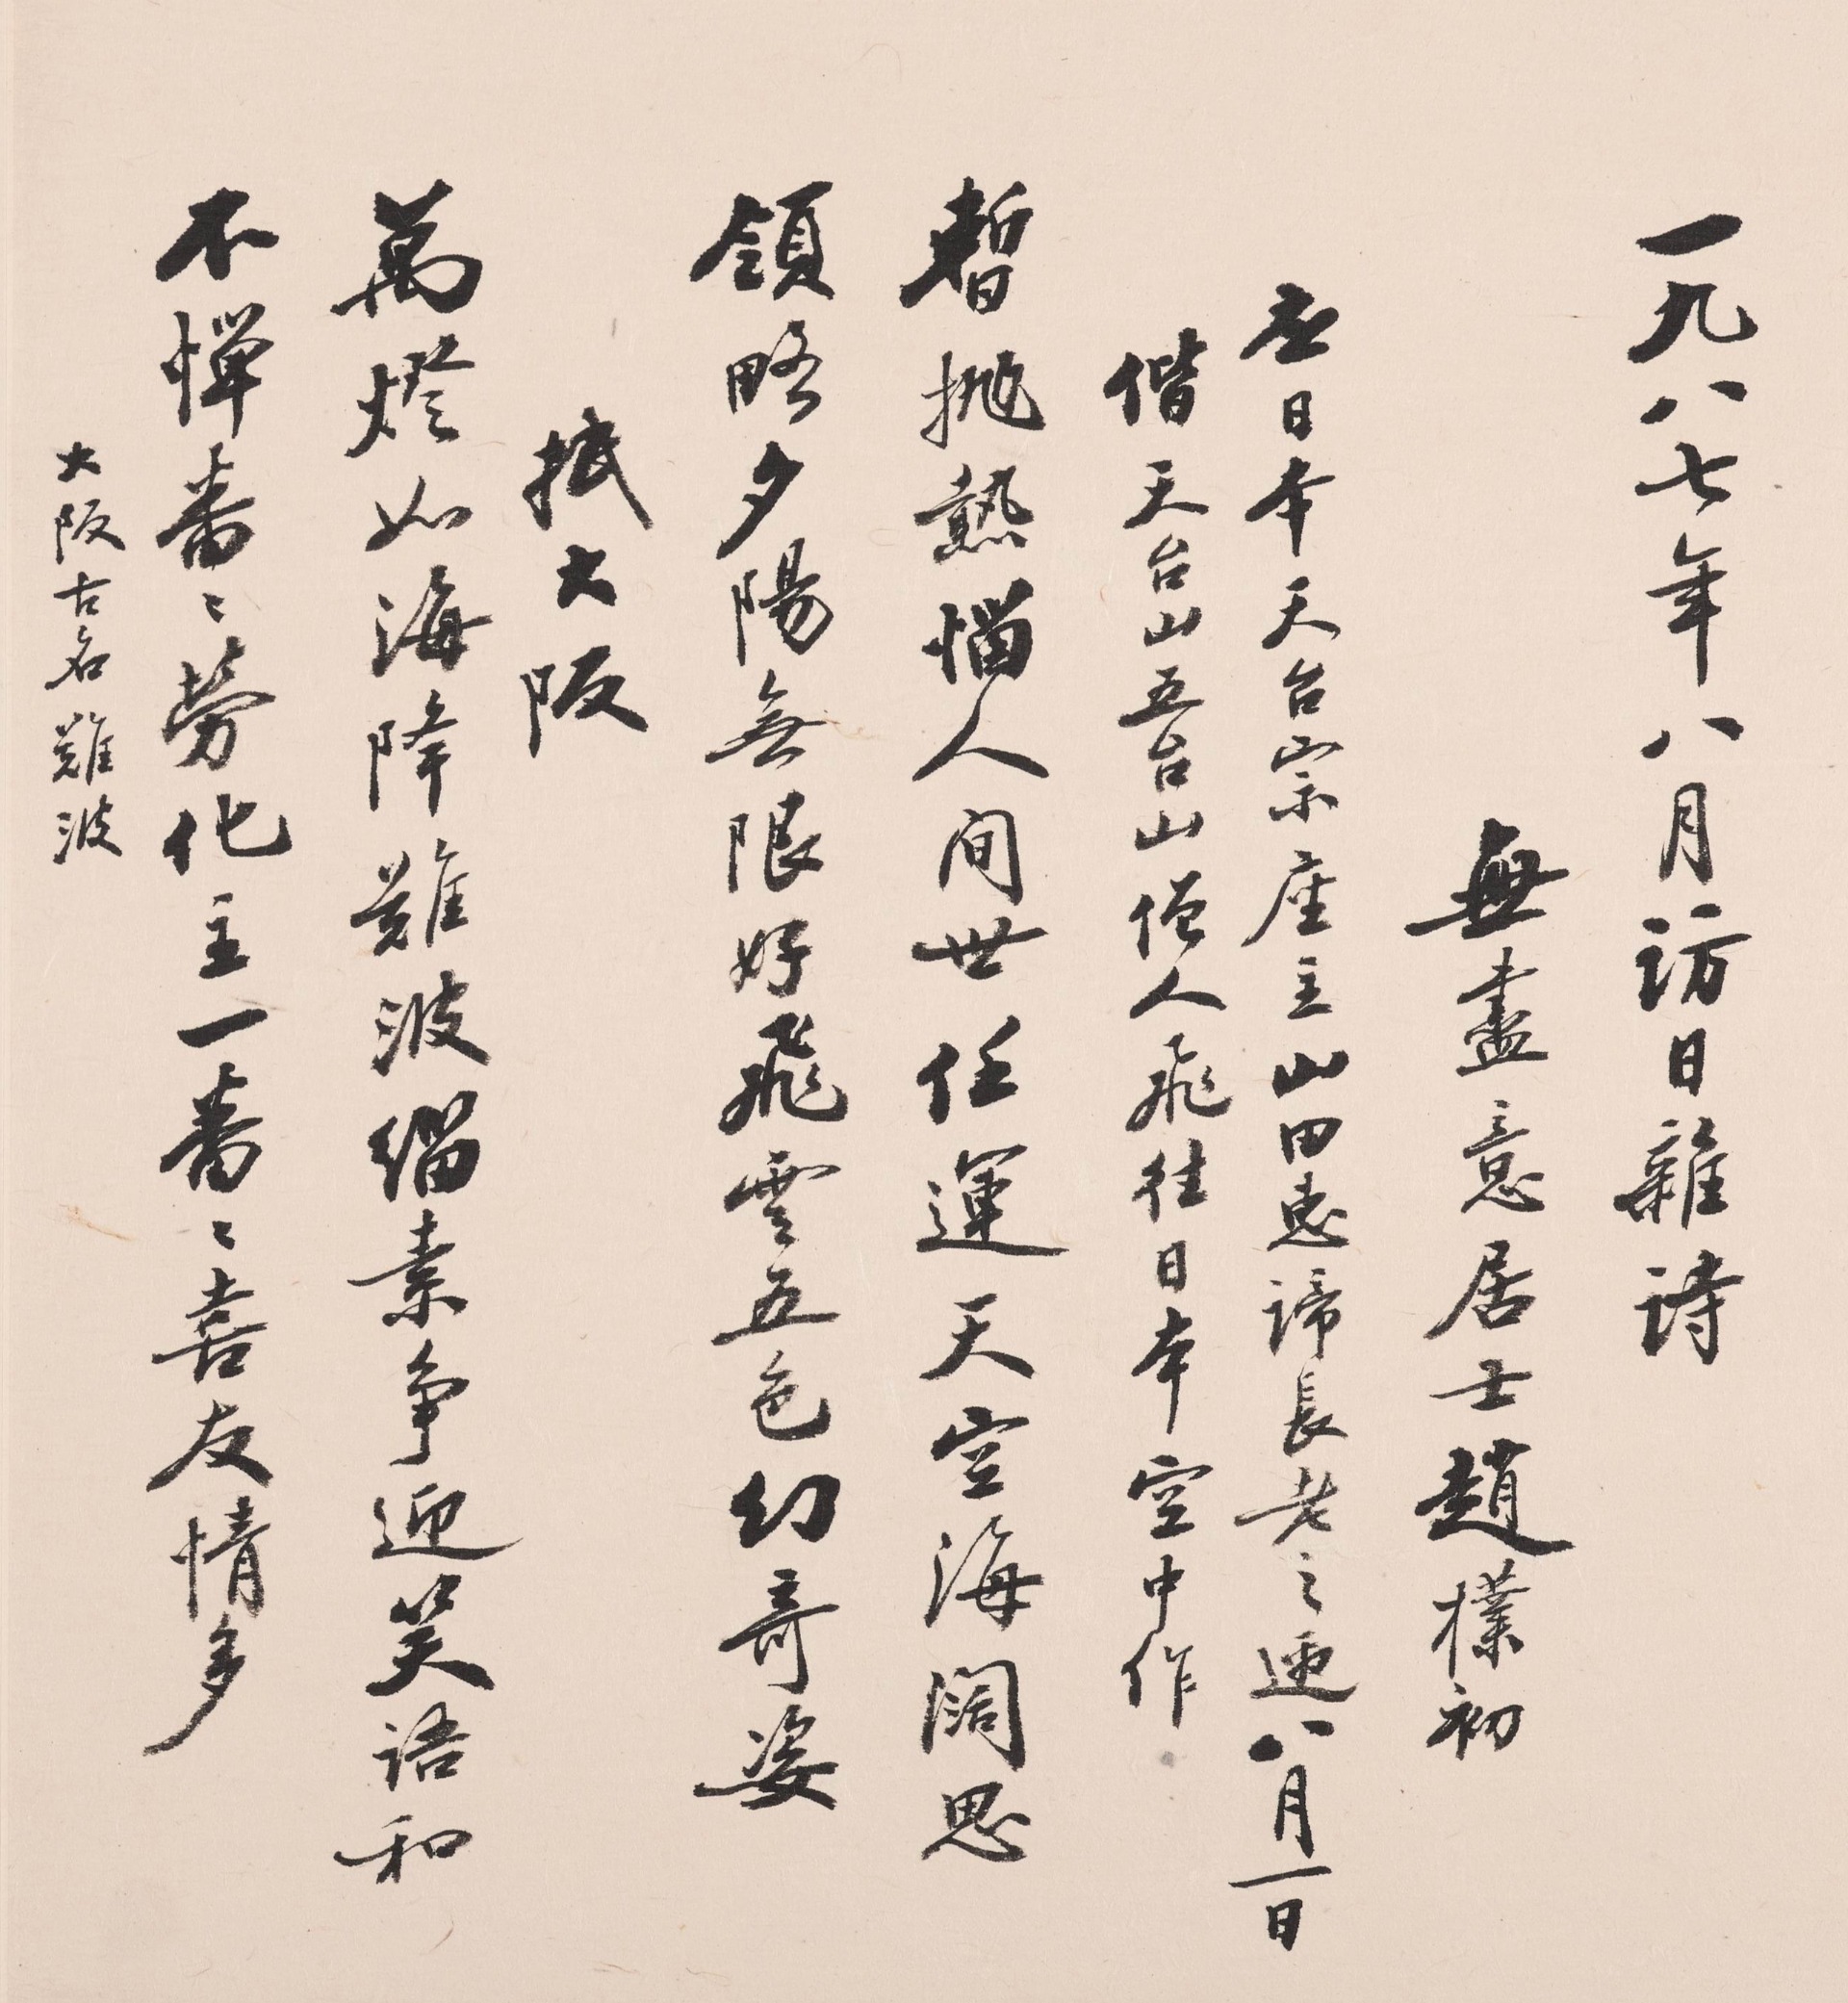 一九八七年八月訪日雜詩
無盡意居士趙樸初
應日本天台宗座主山田惠諦長老之邀八月一日
偕天台山五台山僧人飛往日本空中作
暫拋熱惱人间世任運天空海闊思
領略夕陽無限好飛雲五色幻奇姿
抵大阪
萬燈如海降難波緇素争迎笑語和
不憚番〻勞化主一番〻喜友情多
大阪古名難波